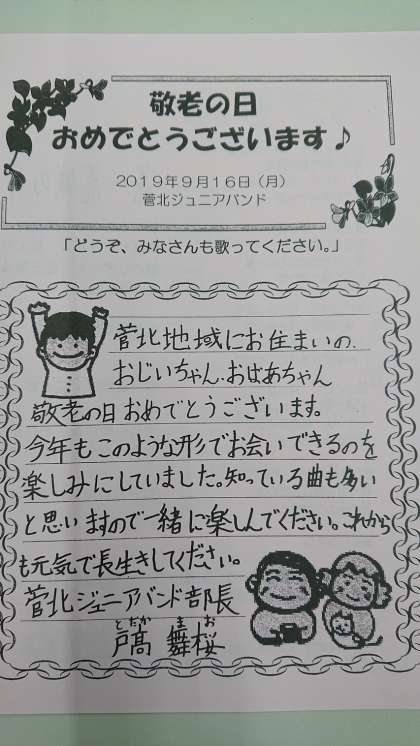 敬老の日
おめでとうございます♪
2019年9月16日(月)
菅北ジュニアバンド
「どうぞ、みなさんも歌ってください。」
菅北地域にお住まいの、
おじいちゃん、おばあちゃん
敬老の日おめでとうございます。
今年もこのような形でお会いできるのを
楽しみにしていました。知っている曲も多い
と思いますので一緒に楽しんでください。これから
も元気で長生きしてください。
菅北ジュニアバンド部長
とだか まお
戸髙 舞桜